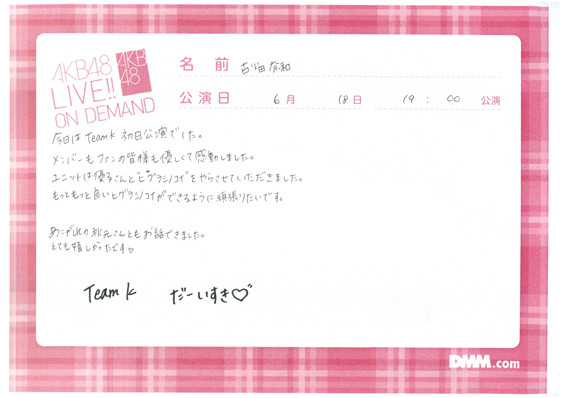 AKB48
LIVE!!
ON DEMAND
AKB
48
名 前 古畑奈和
公演日 6月 18日 19:00 公演
今日はTeamK初日公演でした。
メンバーもファンの皆様も優しくて感動しました。
ユニットは優子さんと"ヒグラシノコイ"をやらせていただきました。
もっともっと良いヒグラシノコイができるように頑張りたいです。
あこがれの秋元さんともお話できました。
とても嬉しかったです♡
Team K だーいすき♡
DMM.com